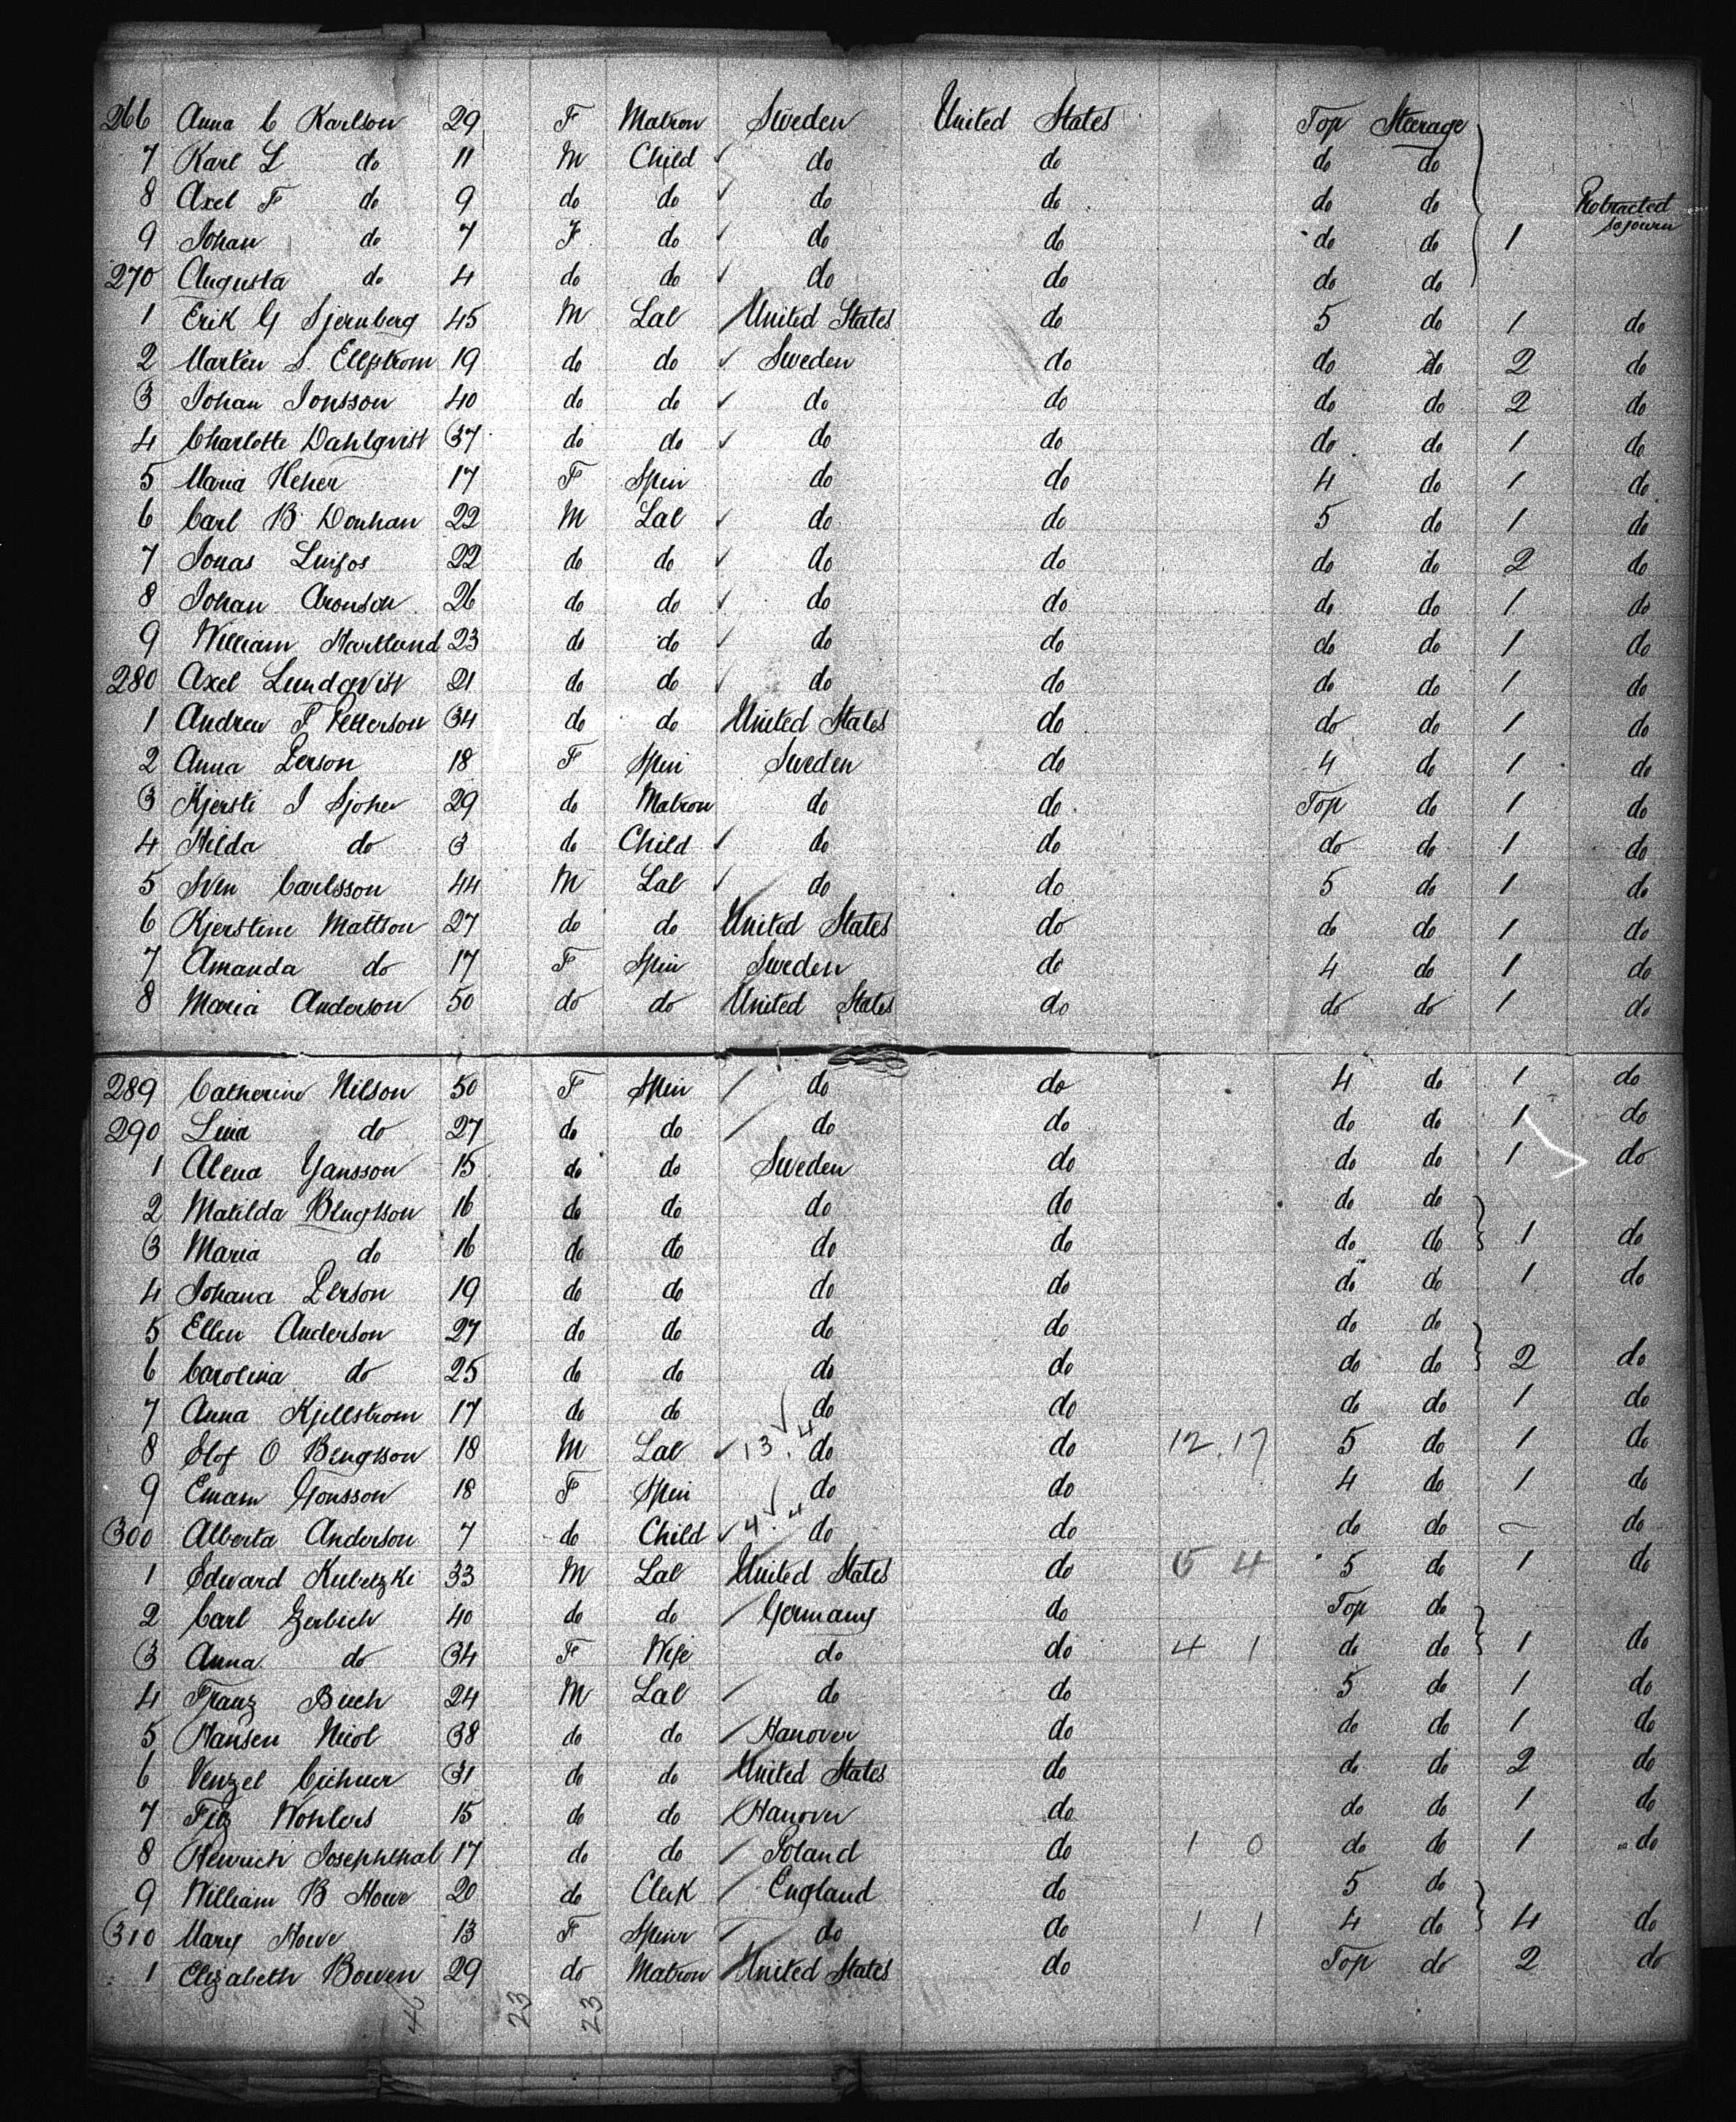 266 Anna C Karlson 29 F Matron Sweden United States Top Steerage
7 Karl L do 11 M Child do do do do
8 Axel F do 9 do do do do do do Protracted sojourn
9 Johan do 7 F do do do do do 1
270 Augusta do 4 do do do do do do
1 Erik G Sjernberg 45 M Lab United States do 5 do 1 do
2 Marten S. Ellstrom 19 do do Sweden do do do 2 do
3 Johan Jonsson 40 do do do do do do 2 do
4 Charlotte Dahlqvist 37 do do do do do do 1 do
5 Maria Heher 17 F Spin do do 4 do 1 do
6 Carl B Donhan 22 M Lab do do 5 do 1 do
7 Jonas 22 do do do do do do 2 do
8 Johan Aronson 26 do do do do do do 1 do
9 William Hartlund 23 do do do do do do 1 do
280 Axel Lundqvist 21 do do do do do do 1 do
1 Andrew F Petterson 34 do do United States do do do 1 do
2 Anna Person 18 F Spin Sweden do 4 do 1 do
3 Kjersti J Sjoher 29 do Matron do do Top do 1 do
4 Hilda do 3 do Child do do do do 1 do
5 Sven Carlsson 44 M Lab do do 5 do 1 do
6 Kjerstine Mattson 27 do do United States do do do 1 do
7 Amanda do 17 F Spin Sweden do 4 do 1 do
8 Maria Anderson 50 do do United States do do do 1 do
289 Catherine Nilson 50 F Spin do do 4 do 1 do
290 Lina do 27 do do do do do do 1 do
1 Alena Yansson 15 do do Sweden do do do 1 do
2 Matilda Bengtson 16 do do do do do do
3 Maria do 16 do do do do do do 1 do
4 Johana Person 19 do do do do do do 1 do
5 Ellen Anderson 27 do do do do do do
6 Carolina do 25 do do do do do do 2 do
7 Anna Kjellstrom 17 do do do do do do 1 do
8 Olof O Bengtson 18 M Lab 13.4 do do 12.17 5 do 1 do
9 Emam Yonsson 18 F Spin do do 4 do 1 do
300 Alberta Anderson 7 do Child 4.4 do do do do – do
1 Edward Kubetzki 33 M Lab United States do 15 4 5 do 1 do
2 Carl Zerbich 40 do do Germany do Top do
3 Anna do 34 F Wife do do 4 1 do do 1 do
4 Franz Buch 24 M Lab do do 5 do 1 do
5 Hansen Nicol 38 do do Hanover do do do 1 do
6 Venzel 31 do do United States do do do 2 do
7 Fitz Wohlers 15 do do Hanover do do do 1 do
8 Heinrich Josephthal 17 do do Poland do 1 0 do do 1 do
9 William B Howe 20 do Clerk England do 5 do
310 Mary Howe 13 F Spinr do do 1 1 4 do 4 do
1 Elizabeth Bowen 29 do Matron United States do Top do 2 do
46 23 23